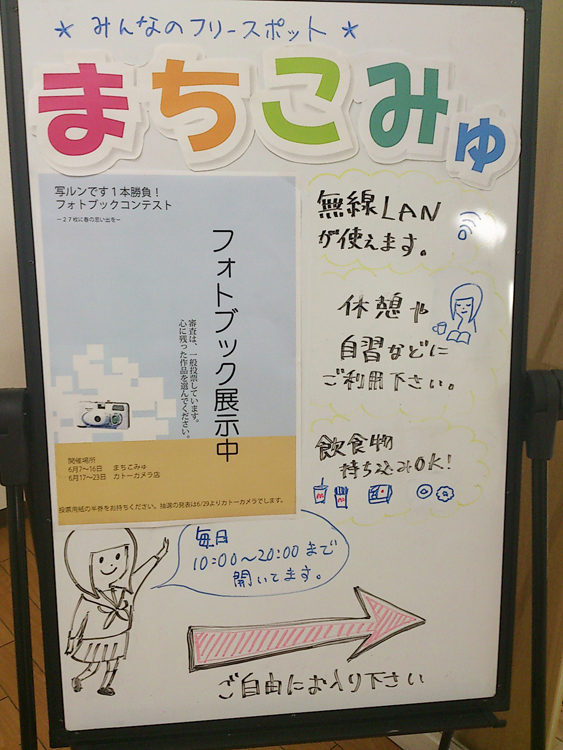 ★ みんなのフリースポット ★
まちこみゅ
写ルンです1本勝負!
フォトブックコンテスト
ー27枚に春の思い出をー
フォトブック展示中
審査は、一般投票しています。
心に残った作品を選んでください。
開催場所
6月7〜16日 まちこみゅ
6月17〜23日 カトーカメラ店
投票用紙の半券をお持ちください。抽選の発表は6/29よりカトーカメラでします。
無線LAN
が使えます。
休憩や
自習などに
ご利用下さい。
飲食物
持ち込みOK!
毎日
10:00〜20:00まで
開いてます。
ご自由にお入り下さい